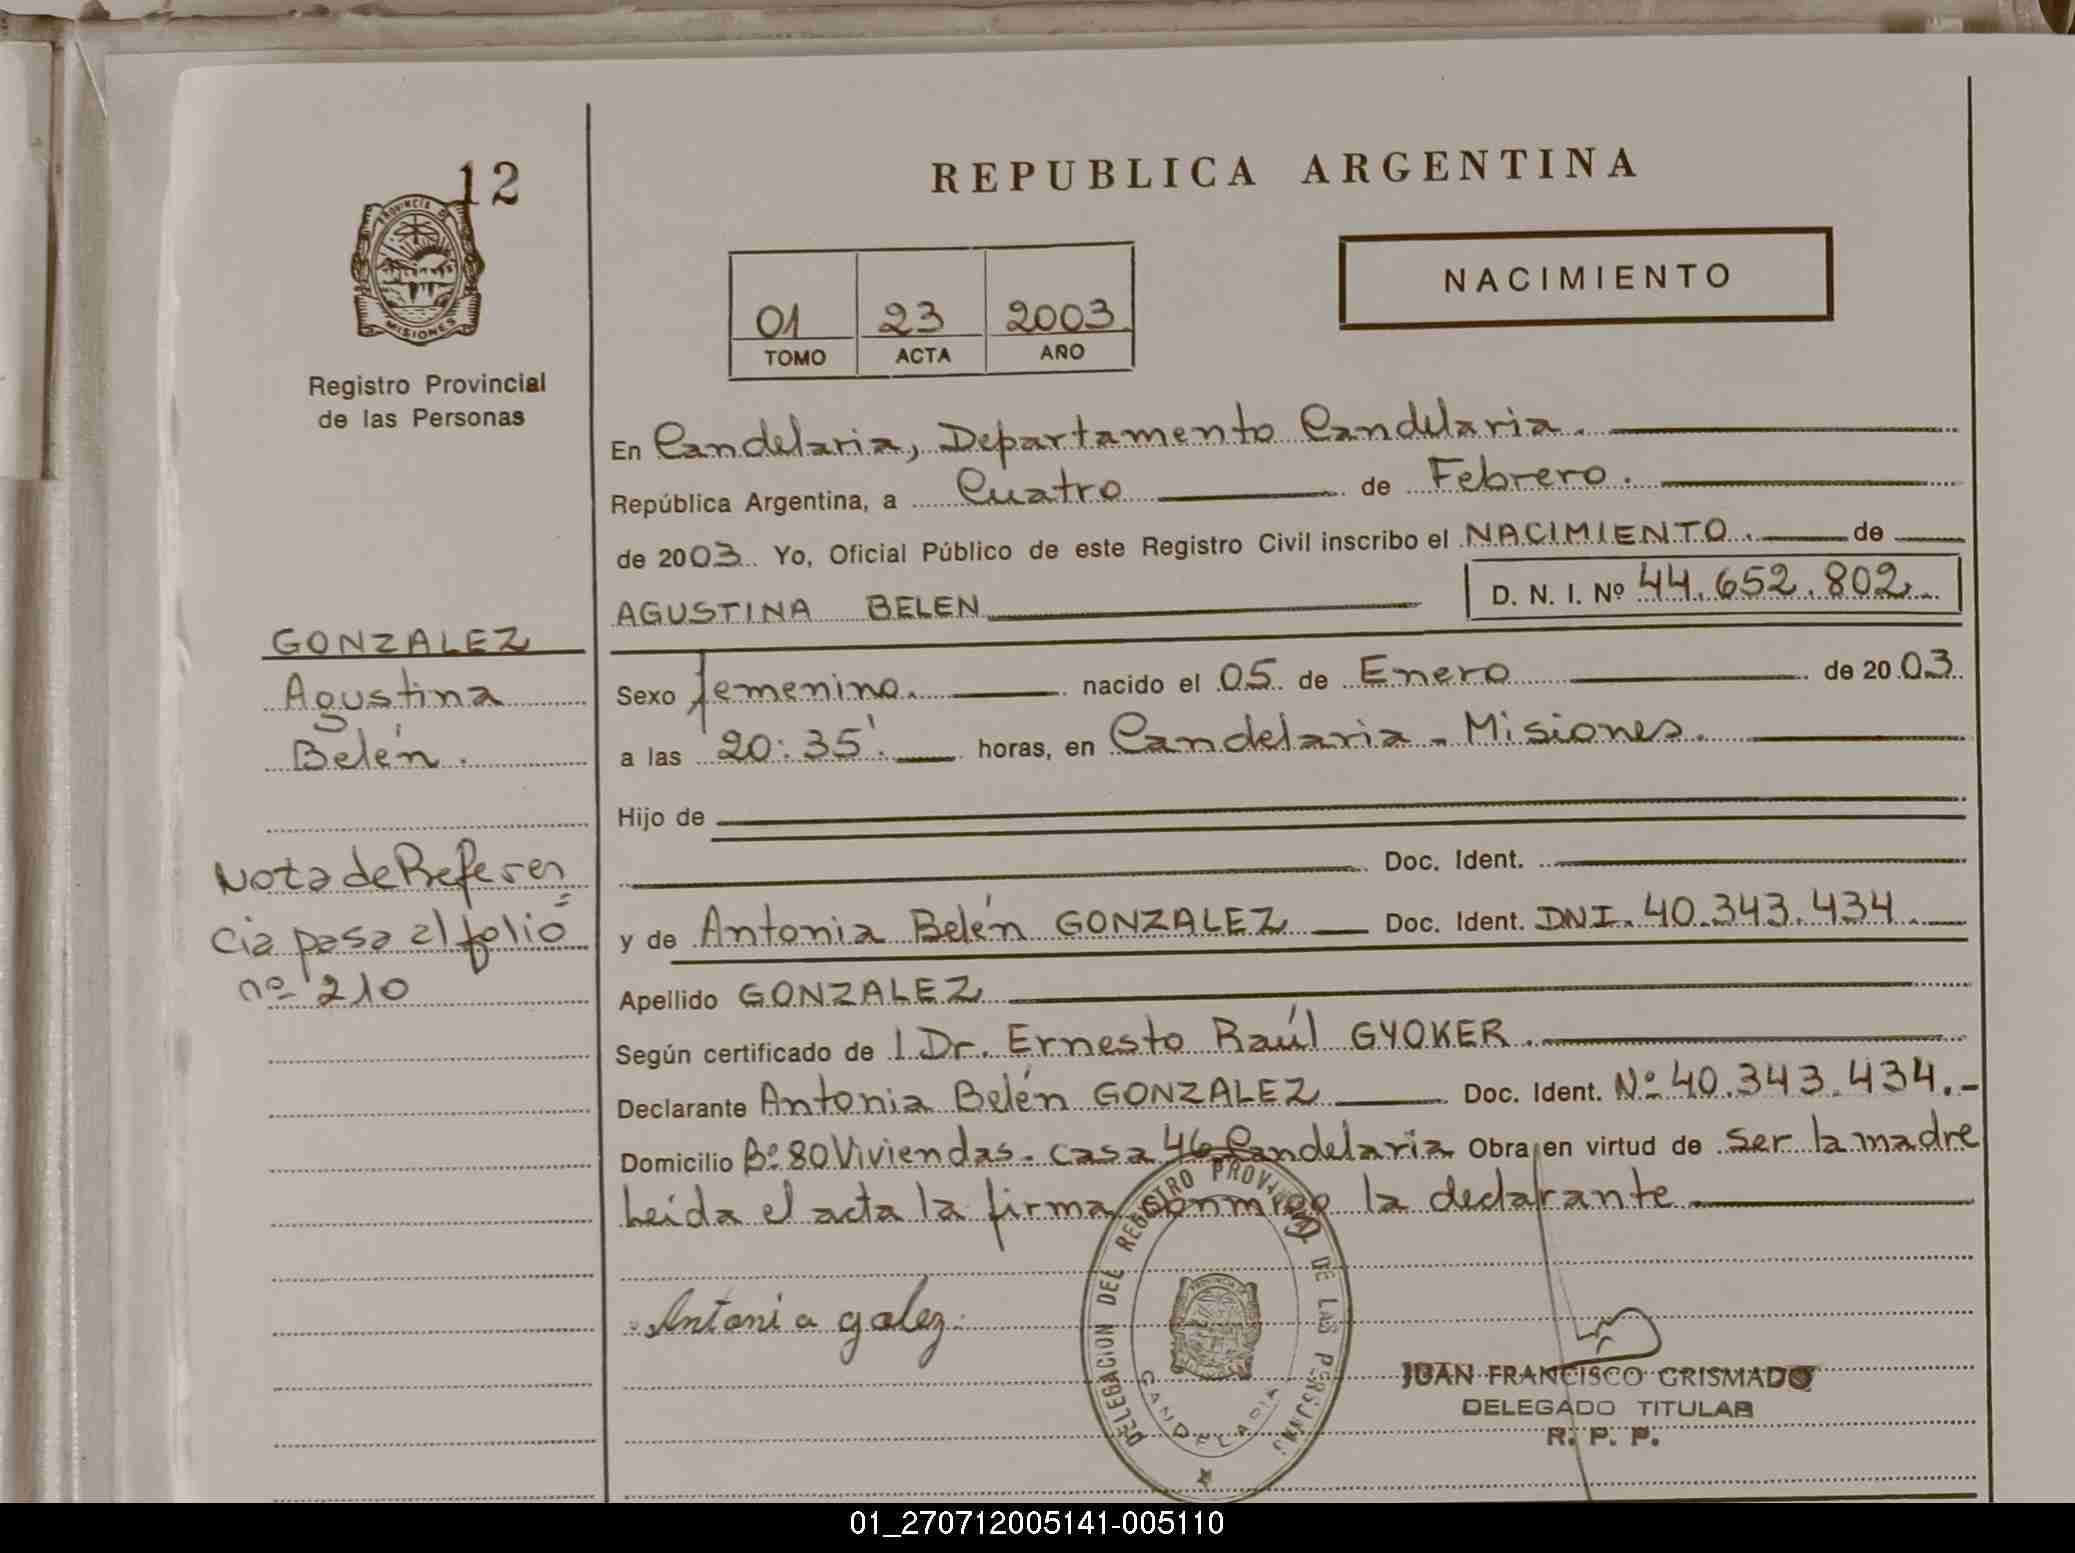 12
PROVINCIA DE
MISIONES
Registro Provincial
de las Personas
REPUBLICA ARGENTINA
NACIMIENTO
01 23 2003
TOMO ACTA AÑO
En Candelaria, Departamento Candelaria.
República Argentina, a Cuatro de Febrero.
de 2003. Yo, Oficial Público de este Registro Civil inscribo el NACIMIENTO. de
AGUSTINA BELEN D. N. I. Nº 44.652.802
GONZALEZ
Agustina
Belén.
Nota de Referen=
cia pasa al folio
nº 210
Sexo femenino. nacido el 05 de Enero de 2003
a las 20:35'. horas, en Candelaria - Misiones.
Hijo de
Doc. Ident.
y de Antonia Belén GONZALEZ Doc. Ident. DNI. 40.343.434
Apellido GONZALEZ
Según certificado de l Dr. Ernesto Raúl GYOKER.
Declarante Antonia Belén GONZALEZ Doc. Ident. Nº 40.343.434.-
Domicilio Bº 80 Viviendas. casa 46 Candelaria Obra en virtud de ser la madre
Leida el acta la firma conmigo la declarante
Antonia galez.
DELEGACION DEL REGISTRO PROVINCIAL DE LAS PERSONAS
CANDELARIA
JUAN FRANCISCO GRISMADO
DELEGADO TITULAR
R. P. P.
01_270712005141-005110